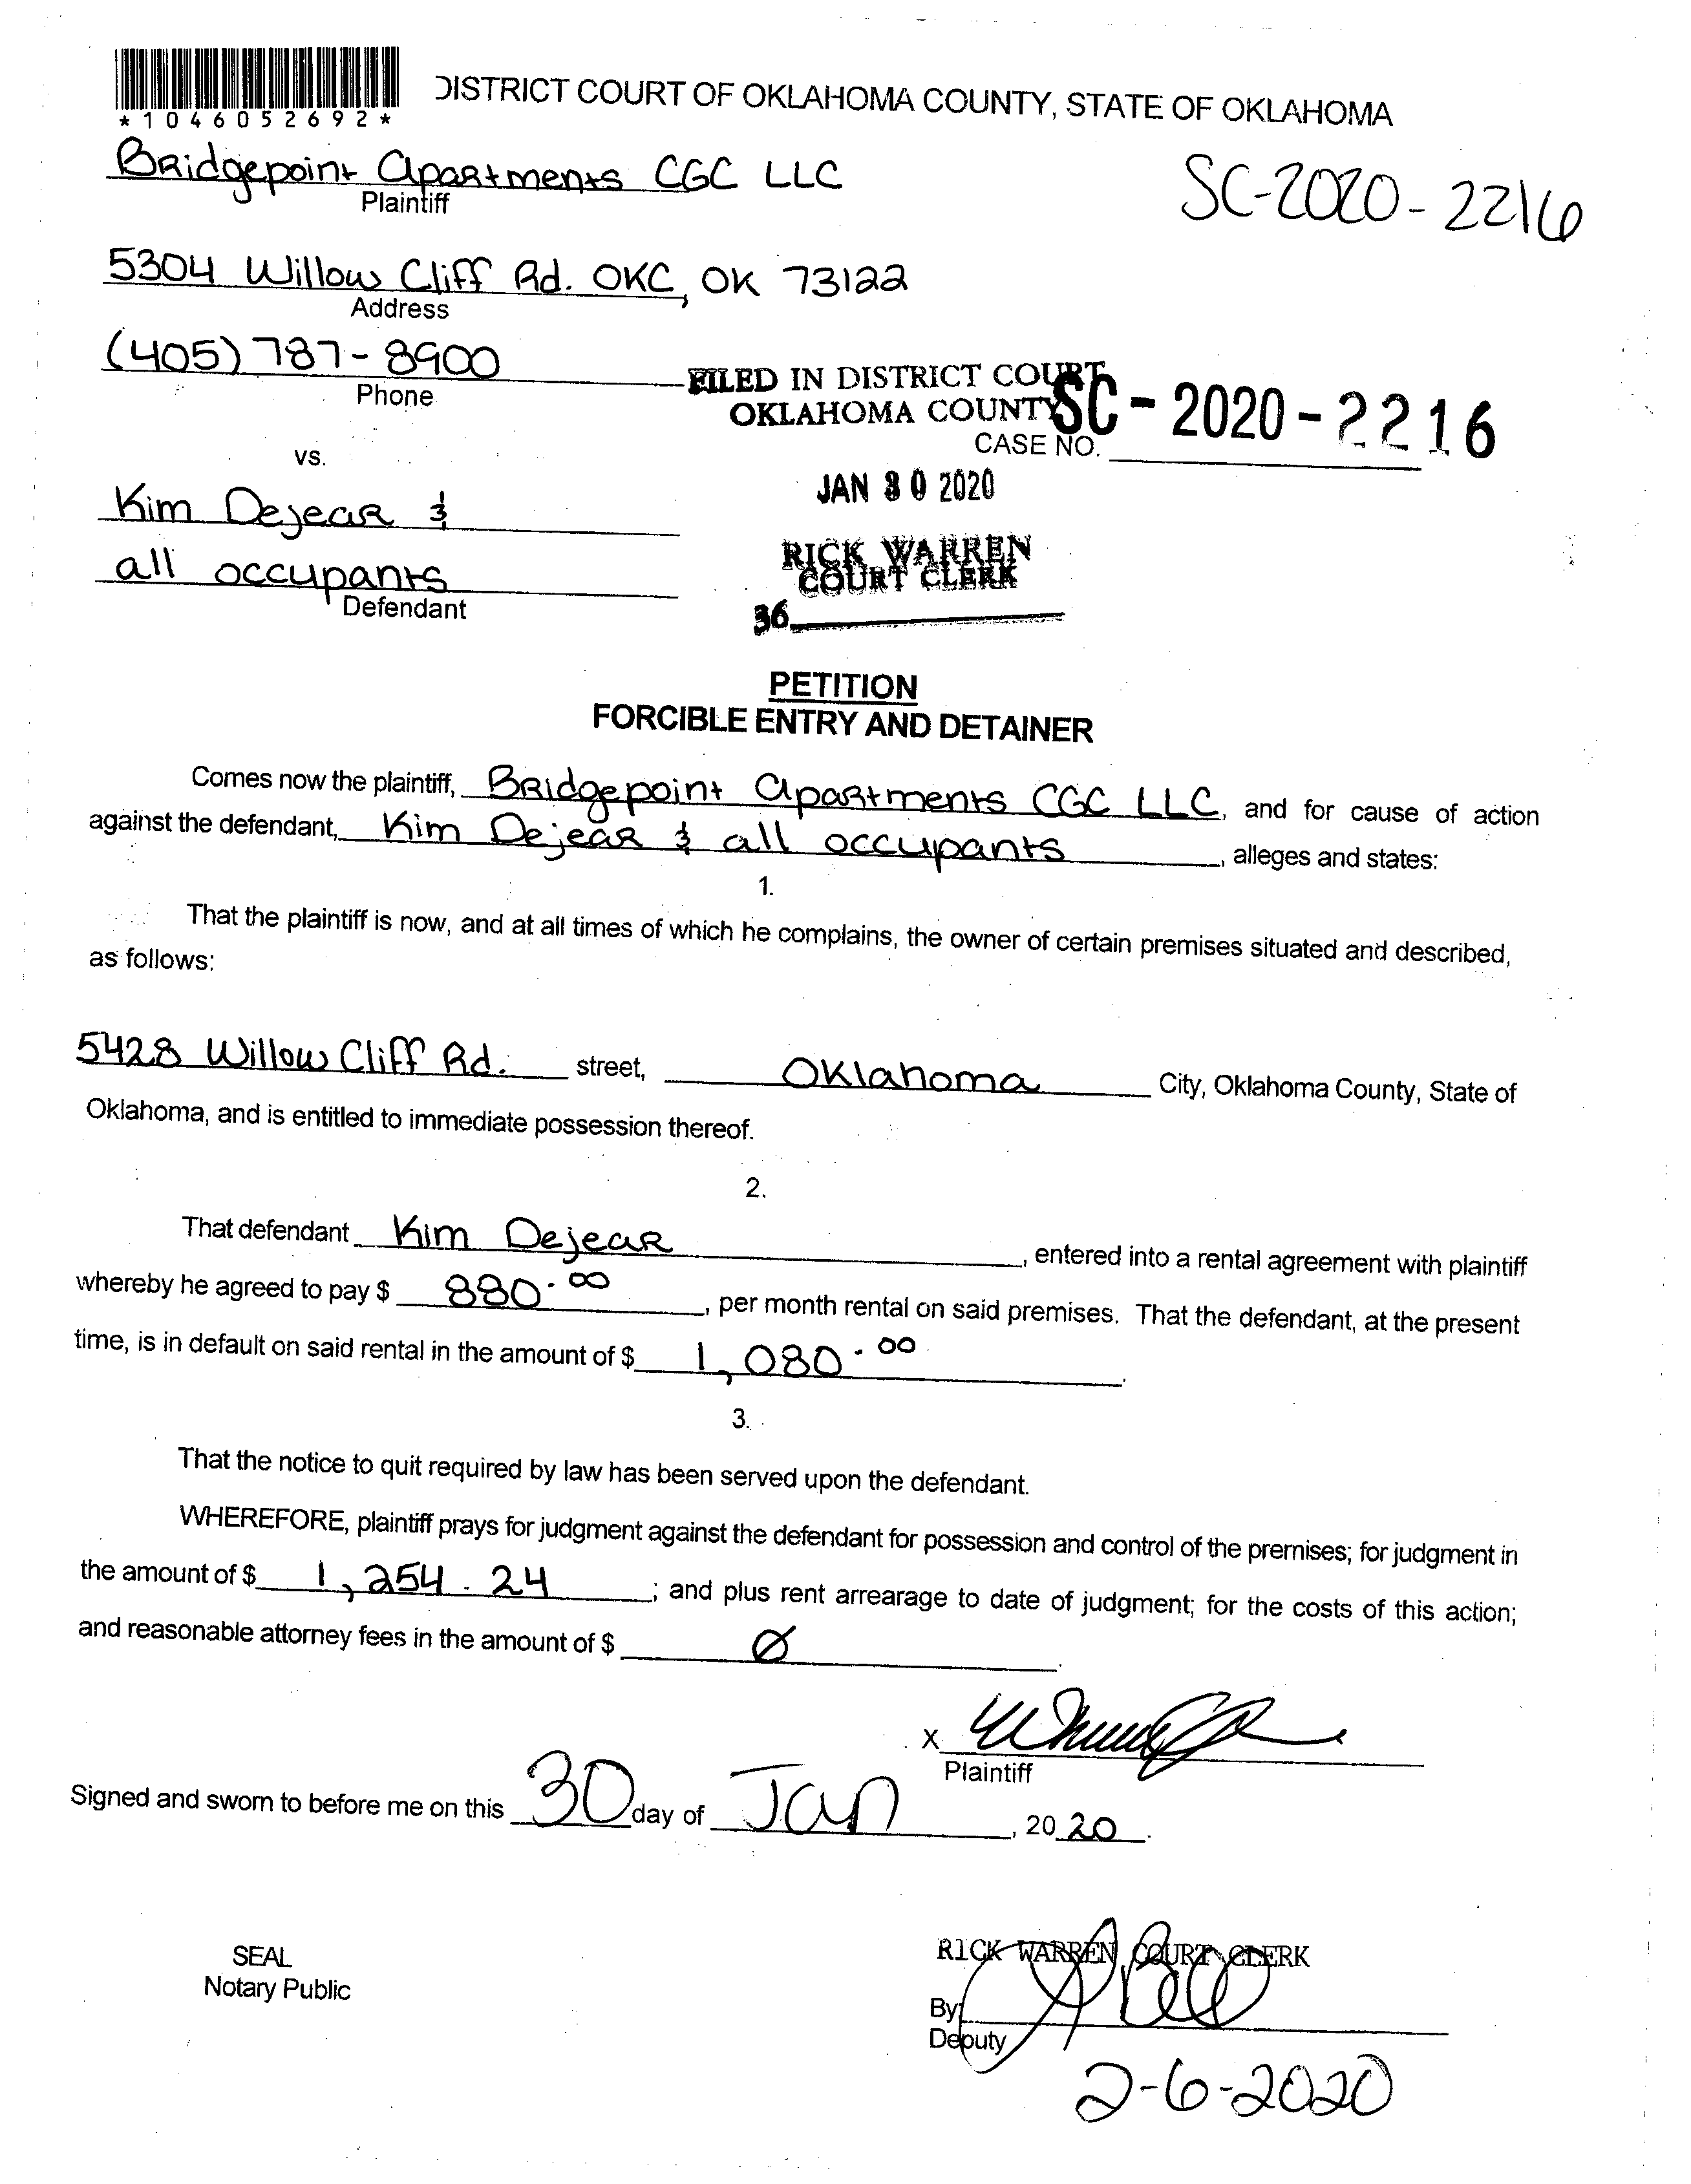 *1046052692*
DISTRICT COURT OF OKLAHOMA COUNTY, STATE OF OKLAHOMA
Bridgepoint Apartments CGC LLC
Plaintiff
SC-2020-2216
5304 Willow Cliff Rd. OKC, OK 73122
Address
(405) 787-8900
Phone
FILED IN DISTRICT COURT
OKLAHOMA COUNTY
SC-2020-2216
CASE NO.
vs.
JAN 30 2020
Kim Dejear &
all occupants
Defendant
RICK WARREN
COURT CLERK
36
PETITION
FORCIBLE ENTRY AND DETAINER
Comes now the plaintiff, Bridgepoint Apartments CGC LLC, and for cause of action
against the defendant, Kim Dejear & all occupants, alleges and states:
1.
That the plaintiff is now, and at all times of which he complains, the owner of certain premises situated and described,
as follows:
5428 Willow Cliff Rd. street, Oklahoma City, Oklahoma County, State of
Oklahoma, and is entitled to immediate possession thereof.
2.
That defendant Kim Dejear, entered into a rental agreement with plaintiff
whereby he agreed to pay $ 880.00, per month rental on said premises. That the defendant, at the present
time, is in default on said rental in the amount of $ 1,080.00.
3.
That the notice to quit required by law has been served upon the defendant.
WHEREFORE, plaintiff prays for judgment against the defendant for possession and control of the premises; for judgment in
the amount of $ 1,254.24; and plus rent arrearage to date of judgment; for the costs of this action;
and reasonable attorney fees in the amount of $ Ø.
X
Plaintiff
Signed and sworn to before me on this 30 day of Jan, 2020.
SEAL
Notary Public
RICK WARREN COURT CLERK
By:
Deputy
2-6-2020